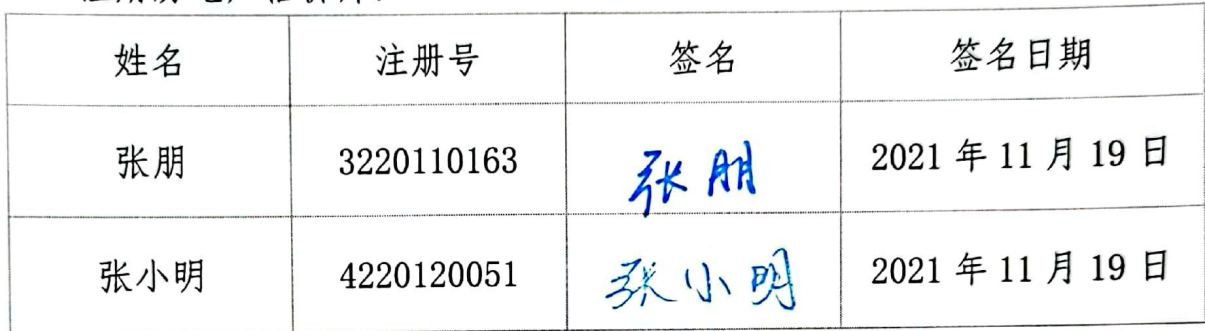 姓名 注册号 签名 签名日期
张朋 3220110163 张朋 2021年11月19日
张小明 4220120051 张小明 2021年11月19日